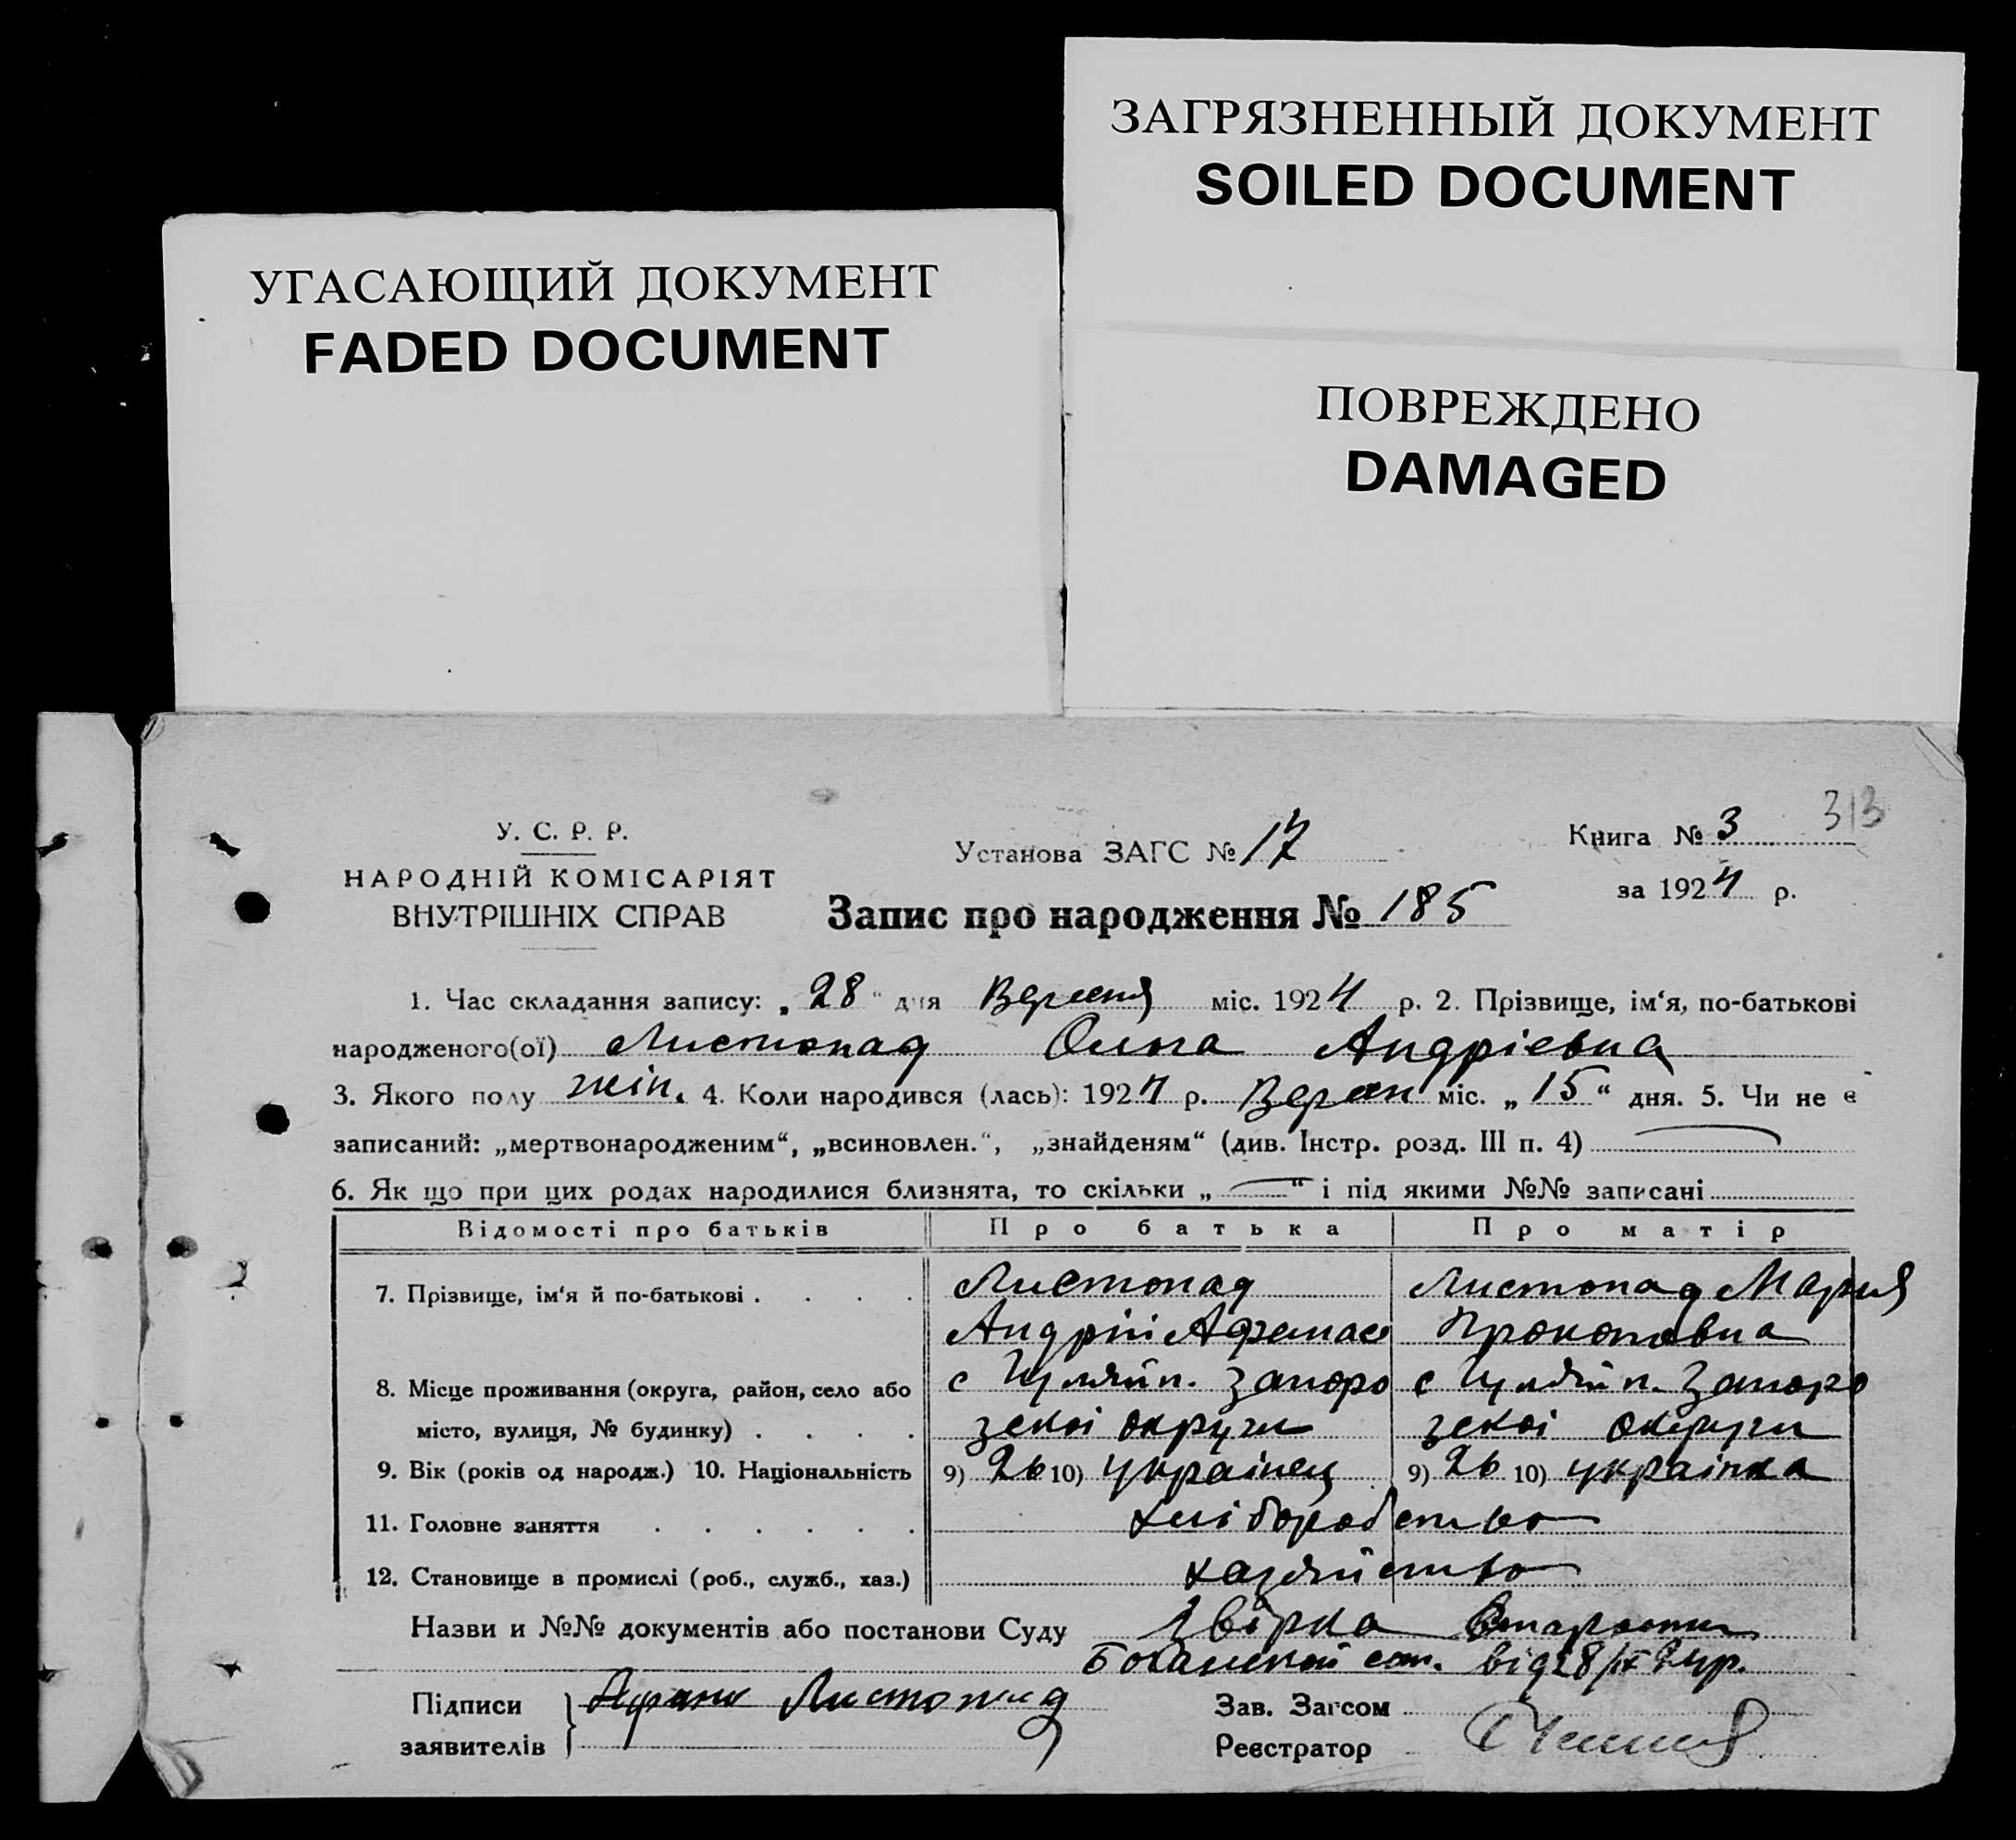 ЗАГРЯЗНЕННЫЙ ДОКУМЕНТ
SOILED DOCUMENT
УГАСАЮЩИЙ ДОКУМЕНТ
FADED DOCUMENT
ПОВРЕЖДЕНО
DAMAGED
313
У. С. Р. Р.
НАРОДНІЙ КОМІСАРІЯТ
ВНУТРІШНІХ СПРАВ
Установа ЗАГС № 17
Книга № 3
за 1924 р.
Запис про народження № 185
1. Час складання запису: „28" дня Вересня міс. 1924 р. 2. Прізвище, ім'я, по-батькові
народженого(ої) Листопад Ольга Андрієвна
3. Якого полу жін. 4. Коли народився (лась): 1924 р. Верес міс. „15" дня. 5. Чи не є
записаний: „мертвонародженим", „всиновлен.", „знайденям" (див. Інстр. розд. III п. 4)
6. Як що при цих родах народилися близнята, то скільки „—" і під якими №№ записані
Відомості про батьків Про батька Про матір
7. Прізвище, ім'я й по-батькові . . . . Листопад Листопад Мария
Андрій Афанас Прокоповна
8. Місце проживання (округа, район, село або с Гуляйп. Запоро с Гуляйп. Запоро
місто, вулиця, № будинку) . . . . зскої округи зскої округи
9. Вік (років од народж.) 10. Національність 9) 26 10) українец 9) 26 10) українка
11. Головне заняття . . . . . . хліборобство
12. Становище в промислі (роб., служб., хаз.) хазяйство
Назви и №№ документів або постанови Суду Звірка Старости
сот. від 28/IX 24р.
Підписи Листопад
заявителів
Зав. Загсом
Реєстратор